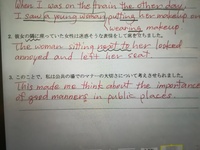 When I was on the train the other day,
I saw a young woman putting on her makeup
wearing makeup
2. 彼女の隣に座っていた女性は迷惑そうな表情をして席を立ちました。
The woman sitting next to her looked
annoyed and left her seat.
3. このことで、私は公共の場でのマナーの大切さについて考えさせられました。
This made me think about the importance
of good manners in public places.